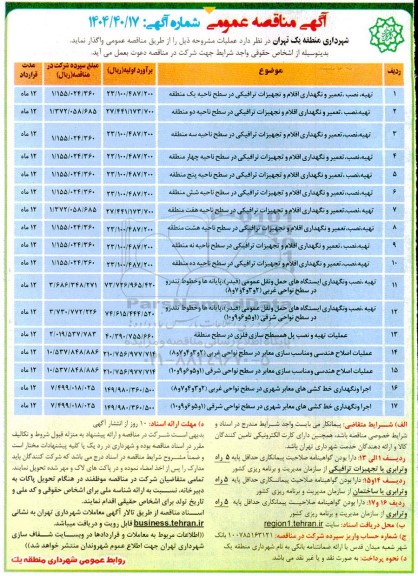 آگهی مناقصه عمومی شماره آگهی: ۱۴۰۴/۴۰/۱۷
شهرداری منطقه یک تهران در نظر دارد عملیات مشروحه ذیل را از طریق مناقصه عمومی واگذار نماید.
بدینوسیله از اشخاص حقوقی واجد شرایط جهت شرکت در مناقصه دعوت بعمل می آید.
ردیف موضوع برآورد اولیه(ریال) مبلغ سپرده شرکت در مناقصه(ریال) مدت قرارداد
۱ تهیه،نصب ،تعمیر و نگهداری اقلام و تجهیزات ترافیکی در سطح ناحیه یک منطقه ۲۳/۱۰۰/۴۸۷/۲۰۰ ۱/۱۵۵/۰۲۴/۳۶۰ ۱۲ ماه
۲ تهیه،نصب ،تعمیر و نگهداری اقلام و تجهیزات ترافیکی در سطح ناحیه دو منطقه ۲۷/۴۴۱/۱۷۳/۷۰۰ ۱/۳۷۲/۰۵۸/۶۸۵ ۱۲ ماه
۳ تهیه،نصب ،تعمیر و نگهداری اقلام و تجهیزات ترافیکی در سطح ناحیه سه منطقه ۲۳/۱۰۰/۴۸۷/۲۰۰ ۱/۱۵۵/۰۲۴/۳۶۰ ۱۲ ماه
۴ تهیه،نصب ،تعمیر و نگهداری اقلام و تجهیزات ترافیکی در سطح ناحیه چهار منطقه ۲۳/۱۰۰/۴۸۷/۲۰۰ ۱/۱۵۵/۰۲۴/۳۶۰ ۱۲ ماه
۵ تهیه،نصب ،تعمیر و نگهداری اقلام و تجهیزات ترافیکی در سطح ناحیه پنج منطقه ۲۳/۱۰۰/۴۸۷/۲۰۰ ۱/۱۵۵/۰۲۴/۳۶۰ ۱۲ ماه
۶ تهیه،نصب ،تعمیر و نگهداری اقلام و تجهیزات ترافیکی در سطح ناحیه شش منطقه ۲۳/۱۰۰/۴۸۷/۲۰۰ ۱/۱۵۵/۰۲۴/۳۶۰ ۱۲ ماه
۷ تهیه،نصب ،تعمیر و نگهداری اقلام و تجهیزات ترافیکی در سطح ناحیه هفت منطقه ۲۷/۴۴۱/۱۷۳/۷۰۰ ۱/۳۷۲/۰۵۸/۶۸۵ ۱۲ ماه
۸ تهیه،نصب ،تعمیر و نگهداری اقلام و تجهیزات ترافیکی در سطح ناحیه هشت منطقه ۲۳/۱۰۰/۴۸۷/۲۰۰ ۱/۱۵۵/۰۲۴/۳۶۰ ۱۲ ماه
۹ تهیه،نصب ،تعمیر و نگهداری اقلام و تجهیزات ترافیکی در سطح ناحیه نه منطقه ۲۳/۱۰۰/۴۸۷/۲۰۰ ۱/۱۵۵/۰۲۴/۳۶۰ ۱۲ ماه
۱۰ تهیه،نصب ،تعمیر و نگهداری اقلام و تجهیزات ترافیکی در سطح ناحیه ده منطقه ۲۳/۱۰۰/۴۸۷/۲۰۰ ۱/۱۵۵/۰۲۴/۳۶۰ ۱۲ ماه
۱۱ تهیه ،نصب ونگهداری ایستگاه های حمل ونقل عمومی (فیدر)،پایانه ها وخطوط تندرو در سطح نواحی غربی (۲و۳و۴و۷و۸) ۷۳/۷۲۶/۹۶۵/۴۲۰ ۳/۶۸۶/۳۴۸/۲۷۱ ۱۲ ماه
۱۲ تهیه ،نصب ونگهداری ایستگاه های حمل ونقل عمومی (فیدر)،پایانه ها وخطوط تندرو در سطح نواحی شرقی (۱و۵و۶و۹و۱۰) ۷۴/۶۱۵/۴۴۴/۵۲۰ ۳/۷۳۰/۷۷۲/۲۲۶ ۱۲ ماه
۱۳ عملیات تهیه و نصب پل همسطح سازی فلزی در سطح منطقه ۲/۰۱۹/۵۳۷/۷۸۳ ۱۲ ماه
۱۴ عملیات اصلاح هندسی ومناسب سازی معابر در سطح نواحی غربی (۲و۳و۴و۷و۸) ۲۱۰/۷۵۶/۹۷۷/۷۱۴ ۱۰/۵۳۷/۸۴۸/۸۸۶ ۱۲ ماه
۱۵ عملیات اصلاح هندسی ومناسب سازی معابر در سطح نواحی شرقی (۱و۵و۶و۹و۱۰) ۲۱۰/۷۵۶/۹۷۷/۷۱۴ ۱۰/۵۳۷/۸۴۸/۸۸۶ ۱۲ ماه
۱۶ اجرا ونگهداری خط کشی های معابر شهری در سطح نواحی غربی (۲و۳و۴و۷و۸) ۱۴۹/۹۸۰/۳۶۰/۵۰۰ ۷/۴۹۹/۰۱۸/۰۲۵ ۱۲ ماه
۱۷ اجرا ونگهداری خط کشی های معابر شهری در سطح نواحی شرقی (۱و۵و۶و۹و۱۰) ۱۴۹/۹۸۰/۳۶۰/۵۰۰ ۷/۴۹۹/۰۱۸/۰۲۵ ۱۲ ماه
الف) شرایط متقاضی: پیمانکار می بایست واجد شرایط مندرج در اسناد و
شرایط خصوصی مناقصه باشد، همچنین دارای کارت الکترونیکی تامین کنندگان
کالا و ارائه دهندگان خدمت شهرداری تهران باشد.
ردیف ۱ الی ۱۳: دارا بودن گواهینامه صلاحیت پیمانکاری حداقل پایه ۵ راه
وترابری یا تجهیزات ترافیکی از سازمان مدیریت و برنامه ریزی کشور
ردیف ۱۴و۱۵: دارا بودن گواهینامه صلاحیت پیمانکاری حداقل پایه ۵ راه
وترابری یا ساختمان از سازمان مدیریت و برنامه ریزی کشور
ردیف ۱۶ و ۱۷: دارا بودن گواهینامه صلاحیت پیمانکاری حداقل پایه ۵ راه
وترابری از سازمان مدیریت و برنامه ریزی کشور
ب) محل دریافت اسناد: سایت region1.tehran.ir
ج) شماره حساب واریز سپرده شرکت در مناقصه: ۱۰۰۷۸۵۱۶۳۱۲۱ بانک
شهر شعبه میدان قدس یا ارائه ضمانتنامه بانکی به نام شهرداری منطقه یک
د) مهلت ارائه اسناد: ۱۰ روز از انتشار آگهی
business.tehran.ir قابل رویت و دریافت میباشد.
((اطلاعات مربوط به معاملات و قراردادها در وبسایت شفاف سازی
شهرداری تهران جهت اطلاع عموم شهروندان منتشر خواهد شد))
روابط عمومی شهرداری منطقه یک